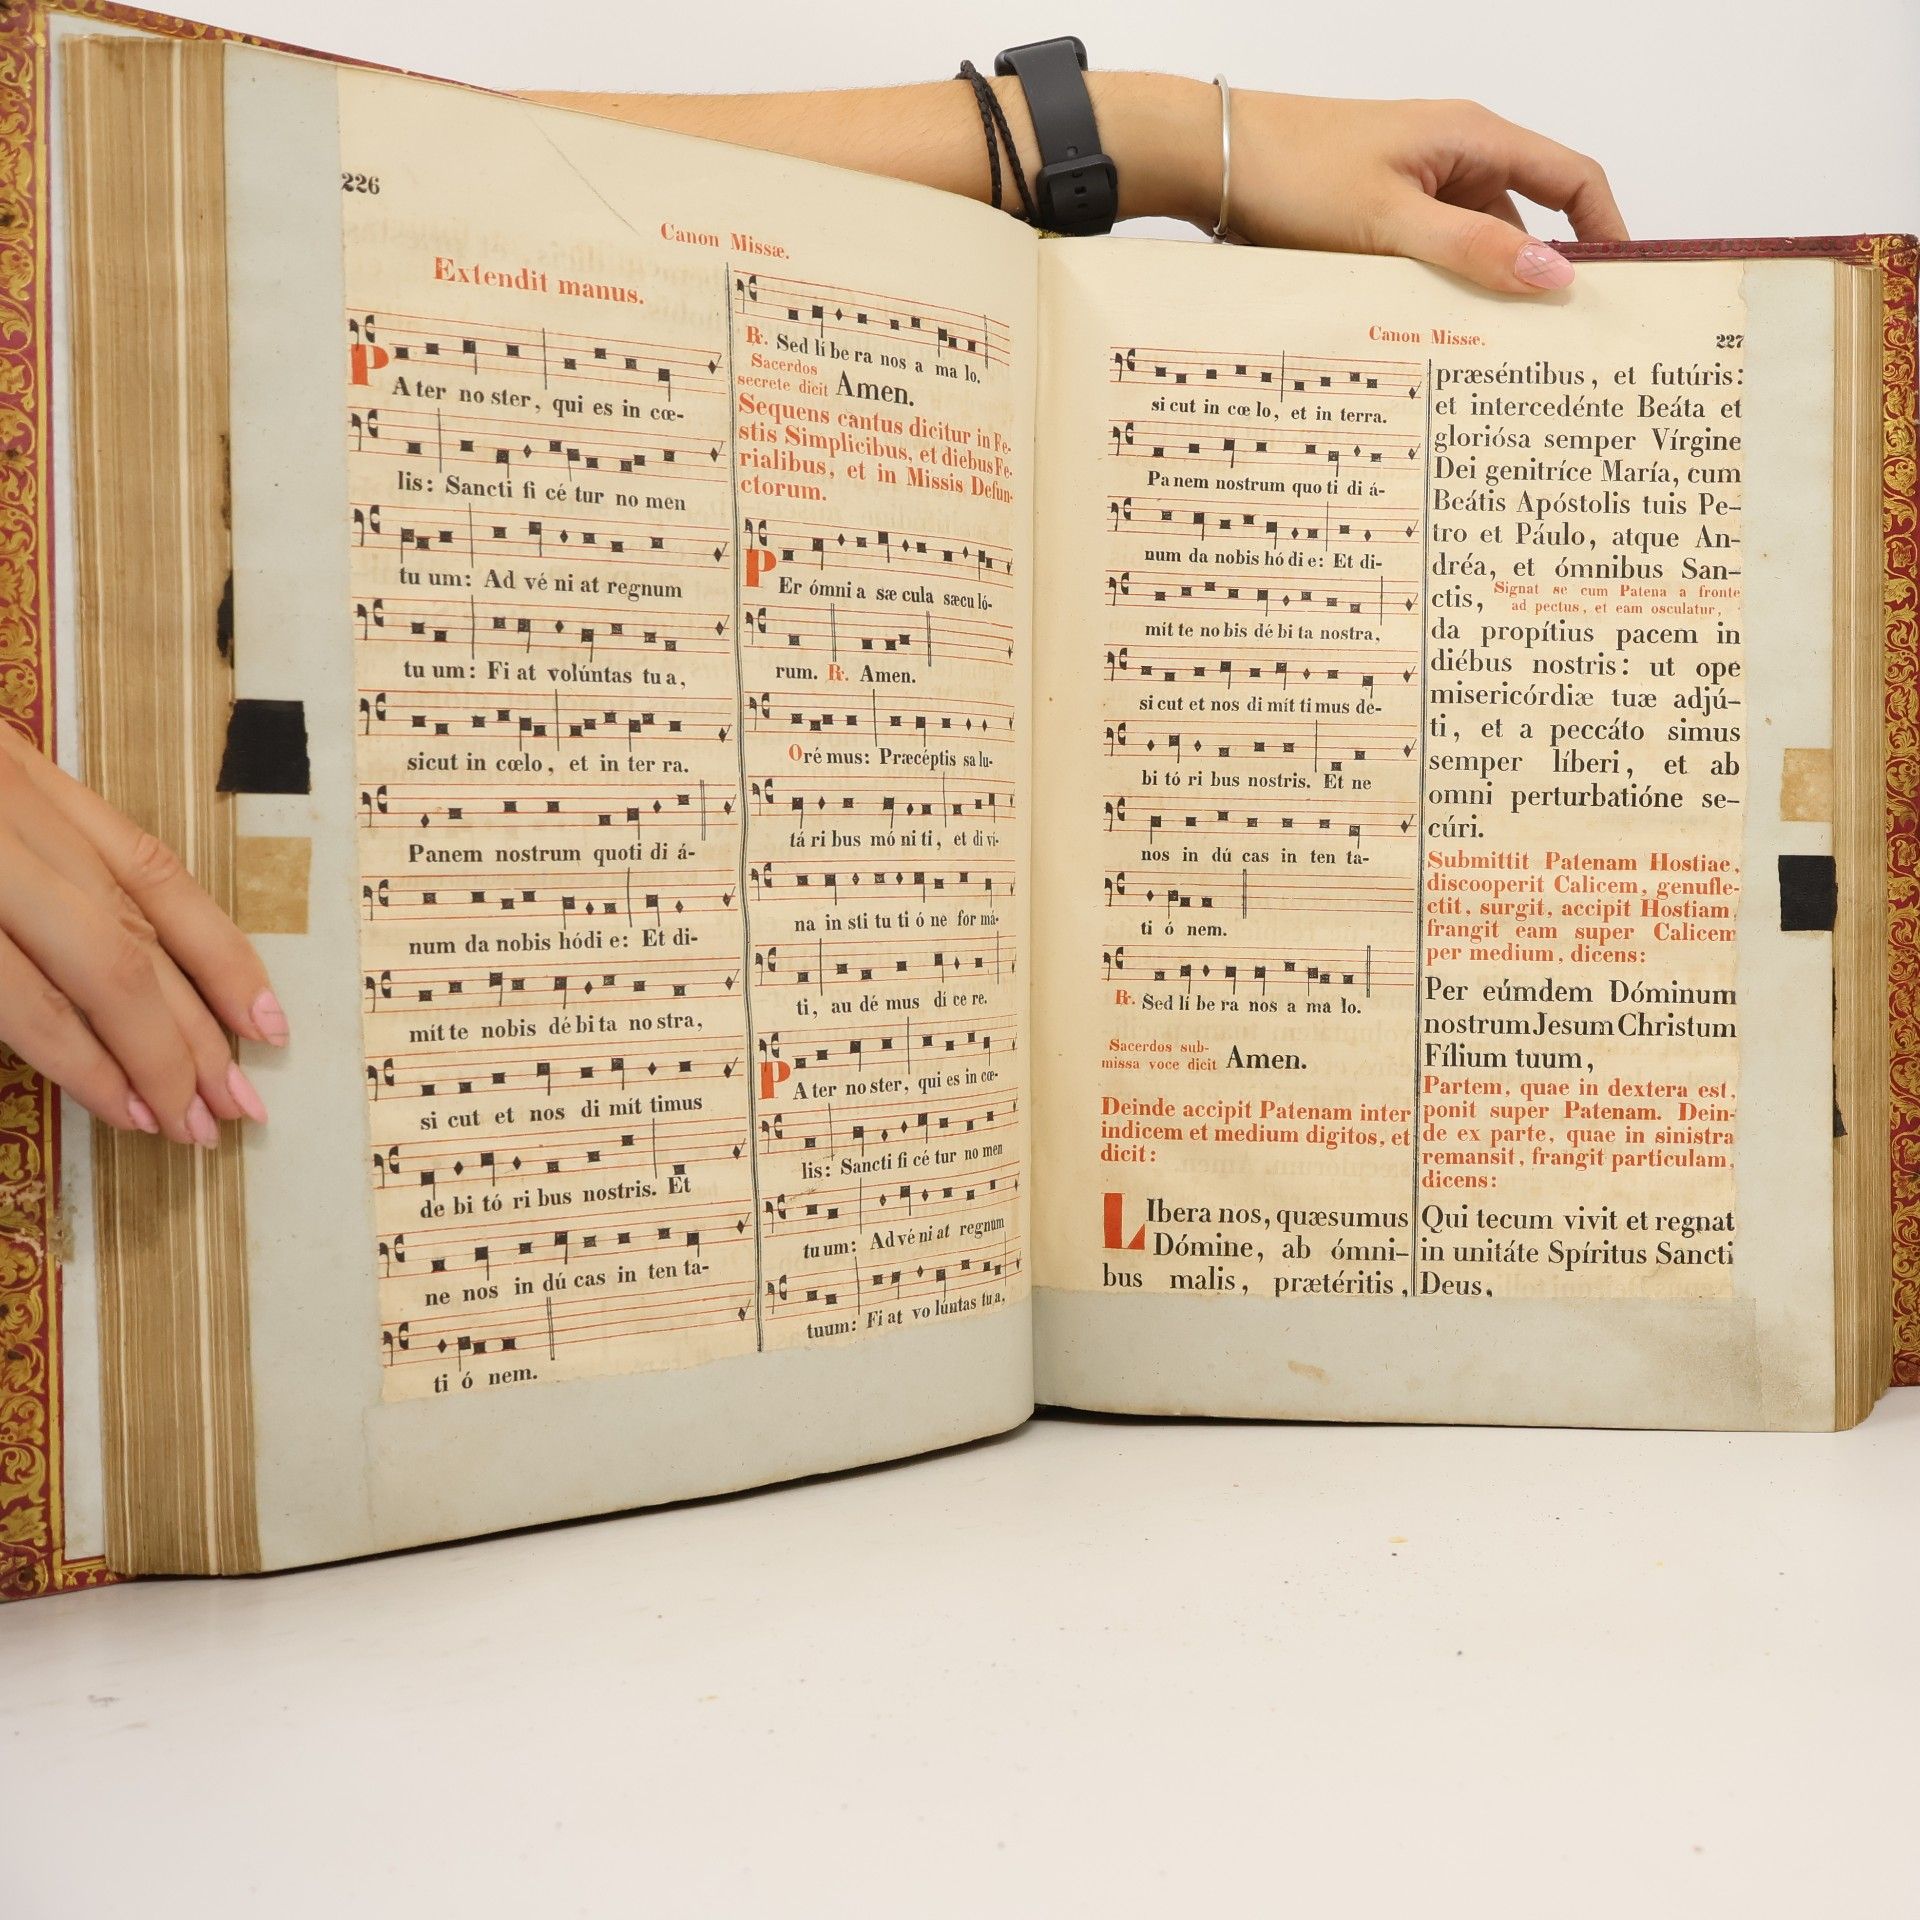 226
Canon Missæ.
Extendit manus.
PAter noster, qui es in cœ-
lis: Sancti fi cé tur no men
tu um: Ad vé ni at regnum
tu um: Fi at volúntas tu a,
sicut in cœlo, et in ter ra.
Panem nostrum quoti di á-
num da nobis hódi e: Et di-
mít te nobis débita nostra,
si cut et nos di mít timus
de bi tó ri bus nostris. Et
ne nos in dú cas in ten ta-
ti ó nem.
℟. Sed lí be ra nos a ma lo.
Sacerdos
secrete dicit Amen.
Sequens cantus dicitur in Fe-
stis Simplicibus, et diebus Fe-
rialibus, et in Missis Defun-
ctorum.
PEr ómni a sæ cula sæcu ló-
rum. ℟. Amen.
Oré mus: Præcéptis salu-
tá ri bus mó ni ti, et di ví-
na in sti tu ti ó ne for má-
ti, au dé mus dí ce re.
PAter no ster, qui es in cœ-
lis: Sancti fi cé tur no men
tu um: Advé ni at regnum
tuum: Fi at vo lúntas tu a,
Canon Missæ.
227
si cut in cœ lo, et in terra.
Pa nem nostrum quo ti di á-
num da nobis hó di e: Et di-
mít te no bis dé bi ta nostra,
si cut et nos di mít ti mus de-
bi tó ri bus nostris. Et ne
nos in dú cas in ten ta-
ti ó nem.
℟. Sed lí be ra nos a ma lo.
Sacerdos sub-
missa voce dicit Amen.
Deinde accipit Patenam inter
indicem et medium digitos, et
dicit:
LIbera nos, quæsumus
Dómine, ab ómni-
bus malis, prætéritis,
præséntibus, et futúris:
et intercedénte Beáta et
gloriósa semper Vírgine
Dei genitríce María, cum
Beátis Apóstolis tuis Pe-
tro et Páulo, atque An-
dréa, et ómnibus San-
ctis, Signat se cum Patena a fronte
ad pectus, et eam osculatur,
da propítius pacem in
diébus nostris: ut ope
misericórdiæ tuæ adjú-
ti, et a peccáto simus
semper líberi, et ab
omni perturbatióne se-
cúri.
Submittit Patenam Hostiae,
discooperit Calicem, genufle-
ctit, surgit, accipit Hostiam,
frangit eam super Calicem
per medium, dicens:
Per eúmdem Dóminum
nostrum Jesum Christum
Fílium tuum,
Partem, quae in dextera est,
ponit super Patenam. Dein-
de ex parte, quae in sinistra
remansit, frangit particulam,
dicens:
Qui tecum vivit et regnat
in unitáte Spíritus Sancti
Deus,